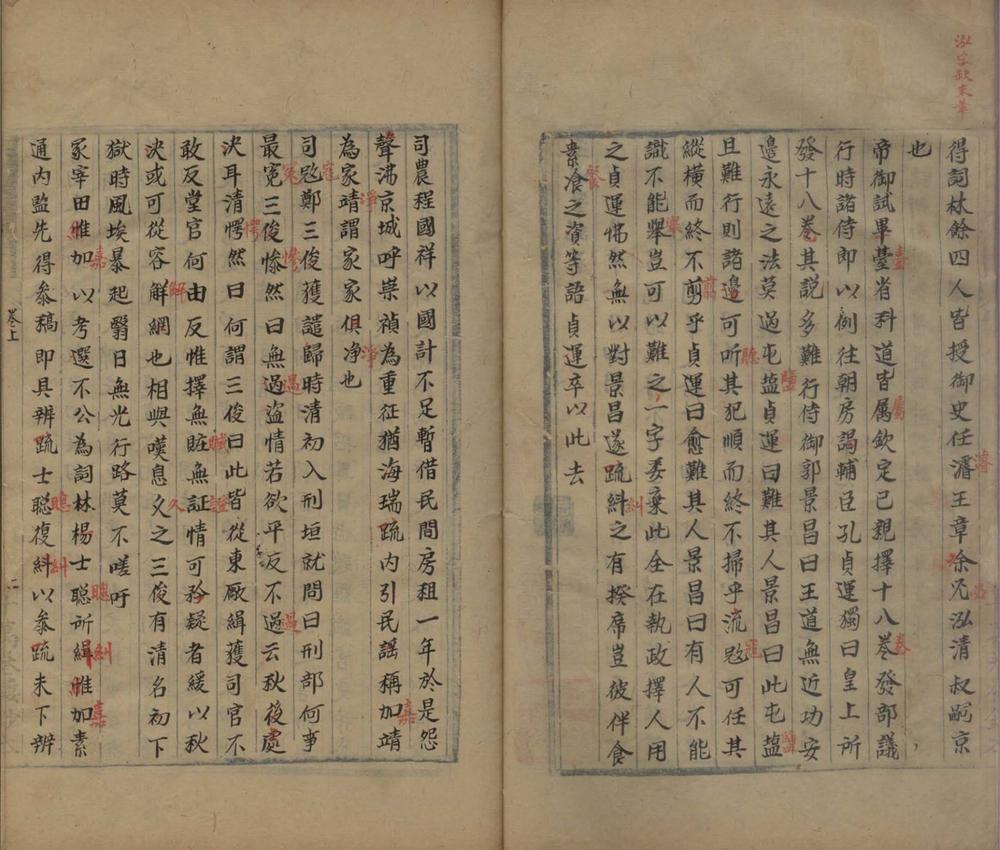 泓字缺末筆
得詞林餘四人皆授御史任濬王章徐兄泓清叔嗣京
也
帝御試畢臺省科道皆属欽定已親擇十八卷發部議
行時諸侍即以例往朝房謁輔臣孔貞運獨曰皇上所
發十八卷其説多難行侍御郭景昌曰王道無近功安
邊永遠之法莫過屯盐貞運曰難其人景昌曰此屯盐
且難行則諸邊可听其犯順而終不掃乎流𡨥可任其
縱橫而終不剪乎貞運曰愈難其人景昌曰有人不能
識不能舉豈可以難之一字委棄此全在執政擇人用
之貞運怫然無以對景昌遂疏糾之有揆席豈彼伴食
素飡之資等語貞運卒以此去
司農程國祥以國計不足暫借民間房租一年於是怨
聲沸京城呼崇禎為重征猶海瑞疏内引民謡稱加靖
為家靖謂家家俱净也
司𡨥鄭三俊獲譴歸時清初入刑垣就問曰刑部何事
最寃三俊慘然曰無過盜情若欲平反不過云秋後處
決耳清愕然曰何謂三俊曰此皆從東厰緝獲司官不
敢反堂官何由反惟擇無賍無証情可矜疑者緩以秋
決或可從容解網也相與嘆息久之三俊有清名初下
獄時風埃暴起翳日無光行路莫不嗟吁
冢宰田惟加以考選不公為詞林楊士聰所緝惟加素
通内監先得叅稿即具辨疏士聰復糾以叅疏未下辨
卷上
二